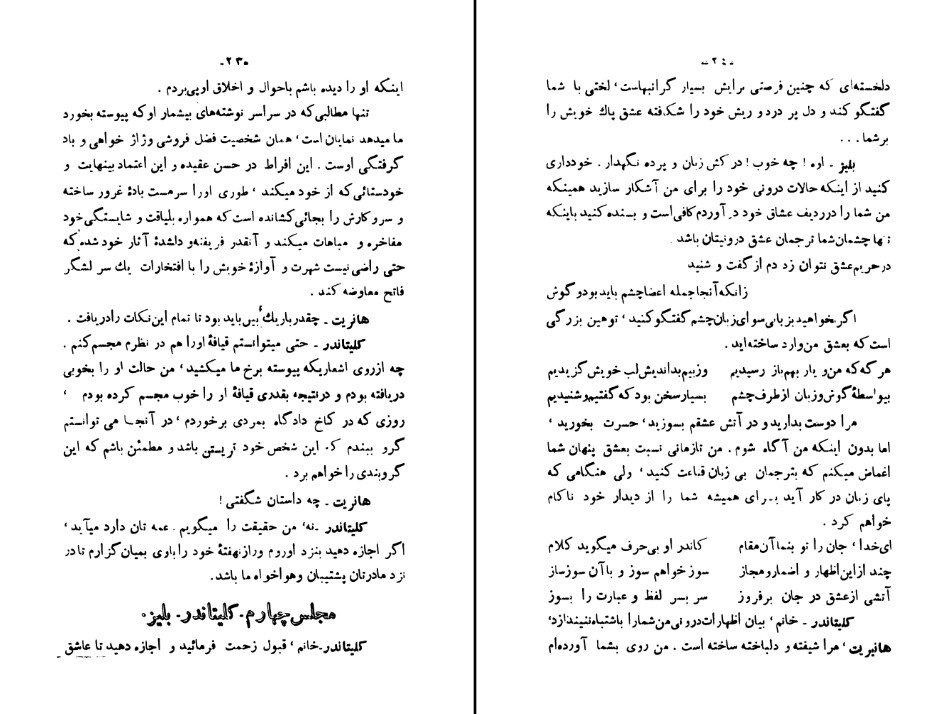 -۲۳-
اینکه او را دیده باشم باحوال و اخلاق او پی بردم .
تنها مطالبی که در سراسر نوشته‌های بیشمار او که پیوسته بخورد
ما میدهد نمایان است، همان شخصیت فضل فروشی و ژاژ خواهی و باد
گرفتگی اوست . این افراط در حسن عقیده و این اعتماد بینهایت و
خودستائی که از خود میکند، طوری او را سرمست بادهٔ غرور ساخته
و سر و کارش را بجائی کشانده است که همواره بلیاقت و شایستگی خود
مفاخره و مباهات میکند و آنقدر فریفته و داشدهٔ آثار خود شده که
حتی راضی نیست شهرت و آوازهٔ خویش را با افتخارات یك سر لشگر
فاتح معاوضه کند .
هانریت ـ چقدر باریك بین باید بود تا تمام این نکات را دریافت .
کلیتاندر ـ حتی میتوانستم قیافهٔ او را هم در نظرم مجسم کنم .
چه از روی اشعاریکه پیوسته برخ ما میکشید، من حالت او را بخوبی
دریافته بودم و در نتیجه بقدری قیافهٔ او را خوب مجسم کرده بودم ،
روزی که در کاخ دادگاه بمردی برخوردم، در آنجا می توانستم
گرو ببندم که این شخص خود تریستی باشد و مطمئن باشم که این
گروبندی را خواهم برد .
هانریت ـ چه داستان شگفتی !
کلیتاندر ـ نه، من حقیقت را میگویم . عمه تان دارد میآید،
اگر اجازه دهید بنزد او روم و راز نهفتهٔ خود را با وی بمیان گزارم تا در
نزد مادرتان پشتیبان و هواخواه ما باشد.
مجلس چهارم ـ کلیتاندر ـ بلیز.
کلیتاندر ـ خانم، قبول زحمت فرمائید و اجازه دهید تا عاشق
-۲٤-
دلخسته‌ای که چنین فرصتی برایش بسیار گرانبهاست، لختی با شما
گفتگو کند و دل پر درد و ریش خود را شکفته عشق پاك خویش را
بر شما . . .
بلیز ـ اوه ! چه خوب ! در کش زبان و پرده نگهدار . خودداری
کنید از اینکه حالات درونی خود را برای من آشکار سازید همینکه
من شما را در ردیف عشاق خود در آوردم کافی است و بسنده کنید باینکه
تنها چشمان شما ترجمان عشق درونیتان باشد .
در حریم عشق نتوان زد دم از گفت و شنید
زانکه آنجا جمله اعضا چشم باید بود و گوش
اگر بخواهید بزبانی سوای زبان چشم گفتگو کنید، توهین بزرگی
است که بعشق من وارد ساخته اید .
هر گه که من و یار بهم باز رسیدیم وز بیم بداندیش لب خویش گزیدیم
بیواسطهٔ گوش و زبان از طرف چشم بسیار سخن بود که گفتیم و شنیدیم
مرا دوست بدارید و در آتش عشقم بسوزید، حسرت بخورید،
اما بدون اینکه من آگاه شوم . من تا زمانی نسبت بعشق پنهان شما
اغماض میکنم که بترجمان بی زبان قناعت کنید، ولی هنگامی که
پای زبان در کار آید برای همیشه شما را از دیدار خود ناکام
خواهم کرد .
ای خدا، جان را تو بنما آن مقام کاندر او بی حرف میگوید کلام
چند از این اظهار و اضمار و مجاز سوز خواهم سوز و با آن سوز ساز
آتشی از عشق در جان برفروز سر بسر لفظ و عبارت را بسوز
کلیتاندر ـ خانم، بیان اظهارات درونی من شما را باشتباه نیندازد،
هانریت، مرا شیفته و دلباخته ساخته است . من روی بشما آورده‌ام